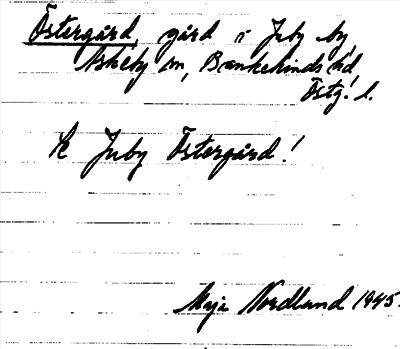 Östergård, gård i Juby by,
Askeby sn, Bankekinds hd
Östg. l.
K Juby Östergård!
Maja Nordlund 1945.